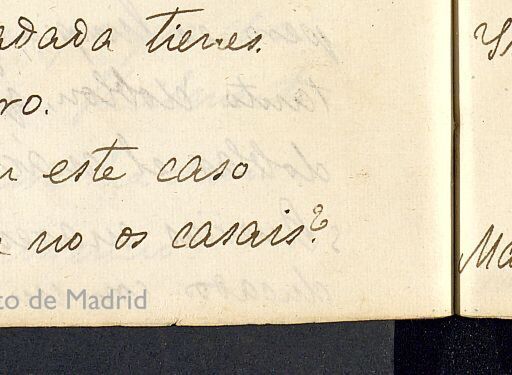 adada tienes.
ro.
este caso
no os casais?
to de Madrid
Ma